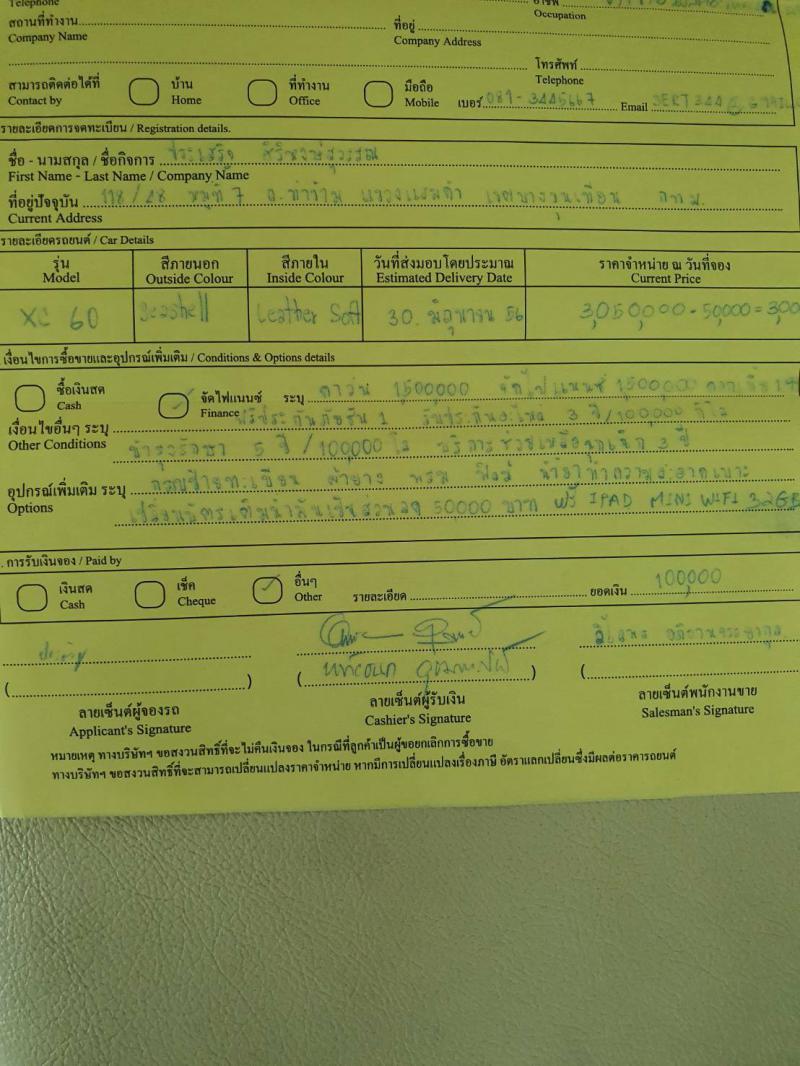 Telephone
Occupation
สถานที่ทำงาน ที่อยู่
Company Name Company Address
โทรศัพท์
Telephone
สามารถติดต่อได้ที่ บ้าน ที่ทำงาน มือถือ
Contact by Home Office Mobile เบอร์ 089-3445667 Email
รายละเอียดการจดทะเบียน / Registration details.
ชื่อ - นามสกุล / ชื่อกิจการ
First Name - Last Name / Company Name
ที่อยู่ปัจจุบัน 118/28 หมู่ที่ 7 กทม.
Current Address
รายละเอียดรถยนต์ / Car Details
รุ่น สีภายนอก สีภายใน วันที่ส่งมอบโดยประมาณ ราคาจำหน่าย ณ วันที่จอง
Model Outside Colour Inside Colour Estimated Delivery Date Current Price
XC 60 Seashell Leather Soft 30 มิถุนายน 56 3,050,000 - 50,000 = 300
เงื่อนไขการซื้อขายและอุปกรณ์เพิ่มเติม / Conditions & Options details
ซื้อเงินสด จัดไฟแนนซ์ ระบุ ดาวน์ 1,500,000 จัดไฟแนนซ์ 1,500,000
Cash Finance ฟรีประกันภัยชั้น 1 3 ปี/100,000 กิโล
เงื่อนไขอื่นๆ ระบุ
Other Conditions 5 ปี/100,000 โล บริการช่วยเหลือฉุกเฉิน 3 ปี
อุปกรณ์เพิ่มเติม ระบุ ผ้ายาง พรม ฟิล์ม
Options 50000 บาท ฟรี IPAD MINI WIFI 32GB
. การรับเงินจอง / Paid by
เงินสด เช็ค อื่นๆ รายละเอียด ยอดเงิน 100,000
Cash Cheque Other
( ) ( ) (
ลายเซ็นต์ผู้จองรถ ลายเซ็นต์ผู้รับเงิน ลายเซ็นต์พนักงานขาย
Applicant's Signature Cashier's Signature Salesman's Signature
หมายเหตุ ทางบริษัทฯ ขอสงวนสิทธิ์ที่จะไม่คืนเงินจอง ในกรณีที่ลูกค้าเป็นผู้ขอยกเลิกการซื้อขาย
ทางบริษัทฯ ขอสงวนสิทธิ์ที่จะสามารถเปลี่ยนแปลงราคาจำหน่าย หากมีการเปลี่ยนแปลงเรื่องภาษี อัตราแลกเปลี่ยนซึ่งมีผลต่อราคารถยนต์